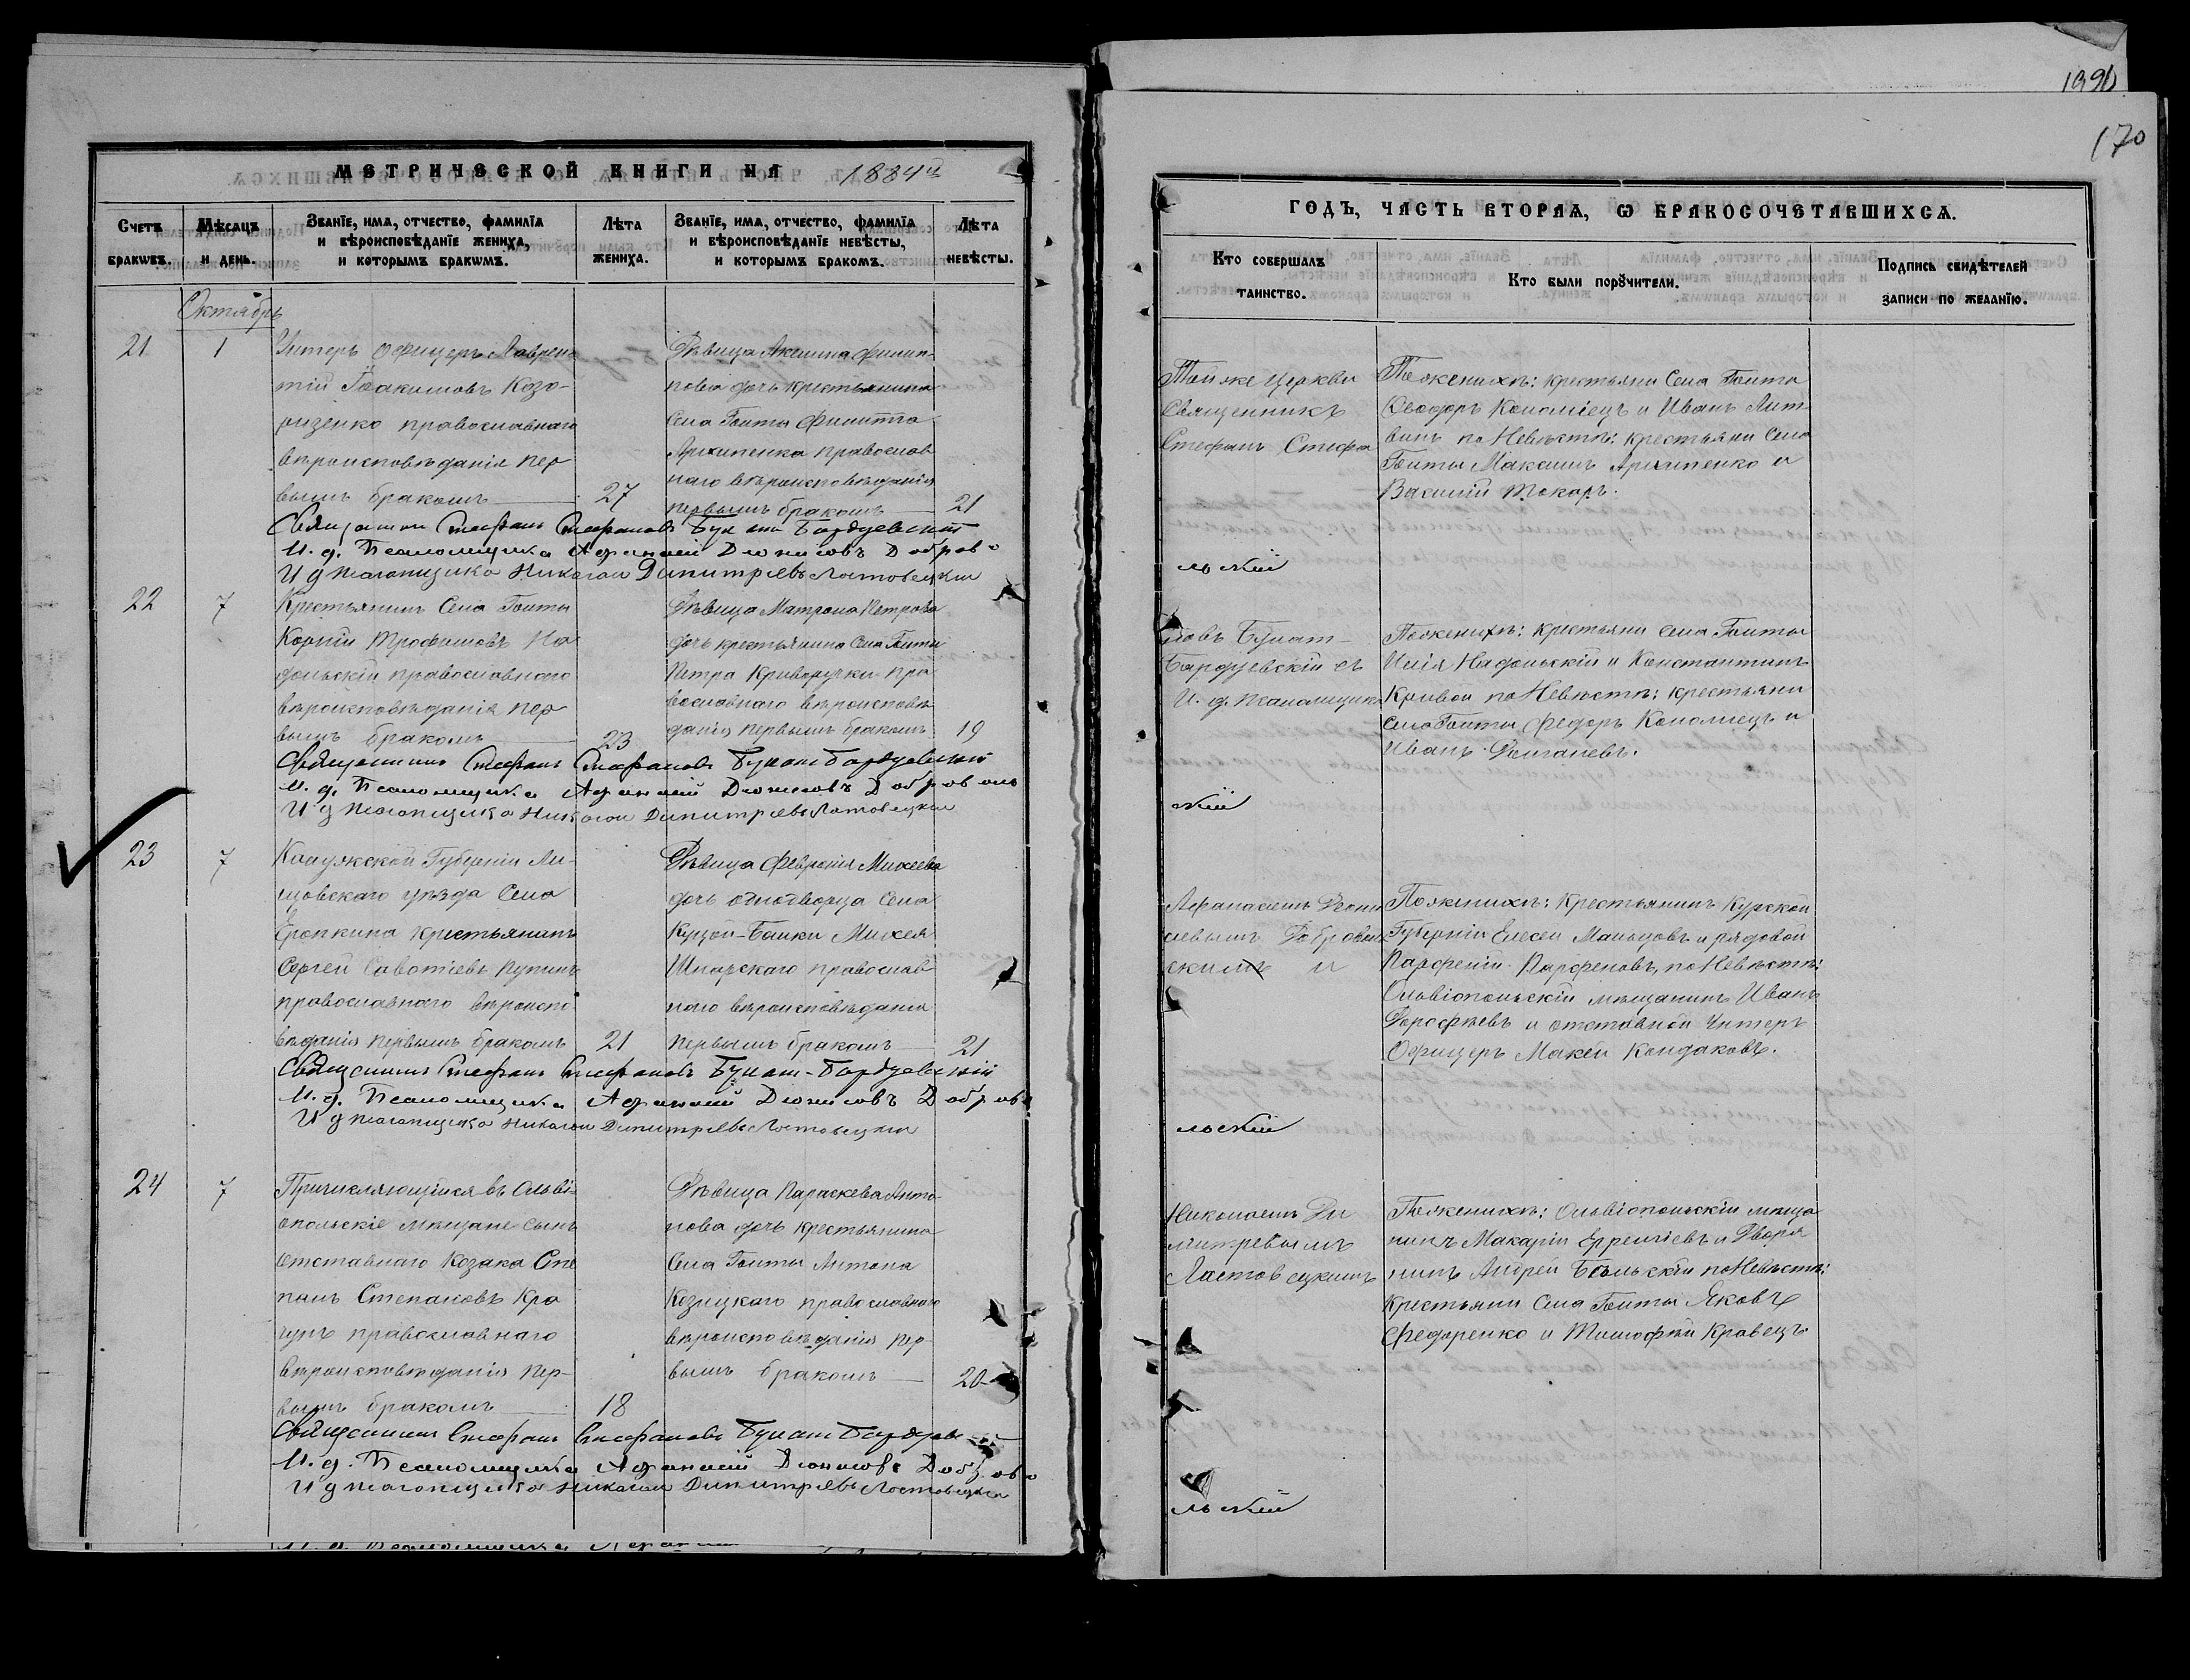 МЕТРИЧЕСКОЙ КНИГИ НА 1884й
Счетъ браковъ.
Мѣсяцъ и день.
Званїе, имя, отчество, фамилїя
и вѣроисповѣданїе жениха,
и которымъ бракомъ.
Лѣта
жениха.
Званїе, имя, отчество, фамилїя
и вѣроисповѣданїе невѣсты,
и которымъ бракомъ.
Лѣта
невѣсты.
Октябрь
21 1
Унтеръ офицеръ Лаврен-
тій Іоакимовъ Козо-
ризенко православнаго
вѣроисповѣданія пер
вымъ бракомъ 27
Дѣвица Акелина Филип-
пова дочь крестьянина
Села Голты Филиппа
Архипенка православ
наго вѣроисповѣданія
первымъ бракомъ 21
Священникъ Стефанъ Стефановъ Булат Бардуевскій
И. д. Псаломщика Афанасій Діонисовъ Доброво
И д псаломщика Николай Димитріевъ Ластовецкій
22 7
Крестьянинъ Села Голты
Корній Трофимовъ На
дольскій православнаго
вѣроисповѣданія пер
вымъ бракомъ 23
Дѣвица Матрона Петрова
дочь крестьянина Села Голты
Петра Криворучки пра
вославнаго вѣроисповѣ
данія первымъ бракомъ 19
Священникъ Стефанъ Стефановъ Булат Бардуевскій
И. д. Псаломщика Афанасій Діонисовъ Добрволь
И д псаломщика Николай Димитріевъ Ластовецкій
23 7
Калужской Губерніи Ли-
щовскаго уѣзда Села
Еропкина крестьянинъ
Сергей Савотіевъ Путинъ
православнаго вѣроиспо
вѣданія первымъ бракомъ 21
Дѣвица Февронія Михеева
дочь однодворца Села
Куцой-Балки Михея
Шпарскаго православ
наго вѣроисповѣданія
первымъ бракомъ 21
Священникъ Стефанъ Стефановъ Булат-Бардуевскій
И. д. Псаломщика Афанасій Діонисовъ Доброво
И д псаломщика Николай Димитріевъ Ластовецкій
24 7
Причисляющійся въ Ольві-
опольскіе мѣщане сынъ
отставнаго Козака Сте
панъ Степановъ Кра
чунъ православнаго
вѣроисповѣданія пер-
вымъ бракомъ 18
Дѣвица Параскева Анто-
нова дочь крестьянина
Села Голты Антона
Козицкаго православнаго
вѣроисповѣданія пер-
вымъ бракомъ 20
Священникъ Стефанъ Стефановъ Булат Бардуев
И. д. Псаломщика Афанасій Діонисовъ Доброво
И д псаломщика Николай Димитріевъ Ластовецкій
170
ГОДЪ, ЧАСТЬ ВТОРАЯ, Ѡ БРАКОСОЧЕТАВШИХСЯ.
Кто совершалъ
таинство.
Кто были порꙋчители.
Подпись свидѣтелей
записи по желанїю.
Той же церкви
Священникъ
Стефанъ Стефа
льскій
По женихѣ: крестьяни Села Голты
Ѳеодоръ Коломіецъ и Иванъ Лит
винъ по Невѣстѣ: крестьяни Села
Голты Максимъ Архипенко и
Василій Токаръ.
новъ Булат-
Бардуевскій съ
И. д. Псаломщика
скій
По женихѣ: крестьяни села Голты
Илія Надольскій и Константинъ
Кривой по Невѣстѣ: крестьяни
села Голты Федоръ Коломіецъ и
Иванъ Долганевъ.
Афанасіемъ Діони
сіевымъ Доброволь
скимъ и
льскій
По женихѣ: Крестьянинъ Курской
Губерніи Елесей Мальцовъ и рядовой
Парфеній Парфеновъ, по Невѣстѣ:
Ольвіопольскій мѣщанинъ Иванъ
Дорофѣевъ и отставной Унтеръ
Офицеръ Макей Кондаковъ.
Николаемъ Ди
митревымъ
Ластовецкимъ
льскій
По женихѣ: Ольвіопольскій мѣща
нинъ Макарій Ерреичіевъ и Дворя
нинъ Андрей Бѣльскій по Невѣстѣ:
Крестьяни Села Голты Яковъ
Федоренко и Тимофѣй Кравецъ